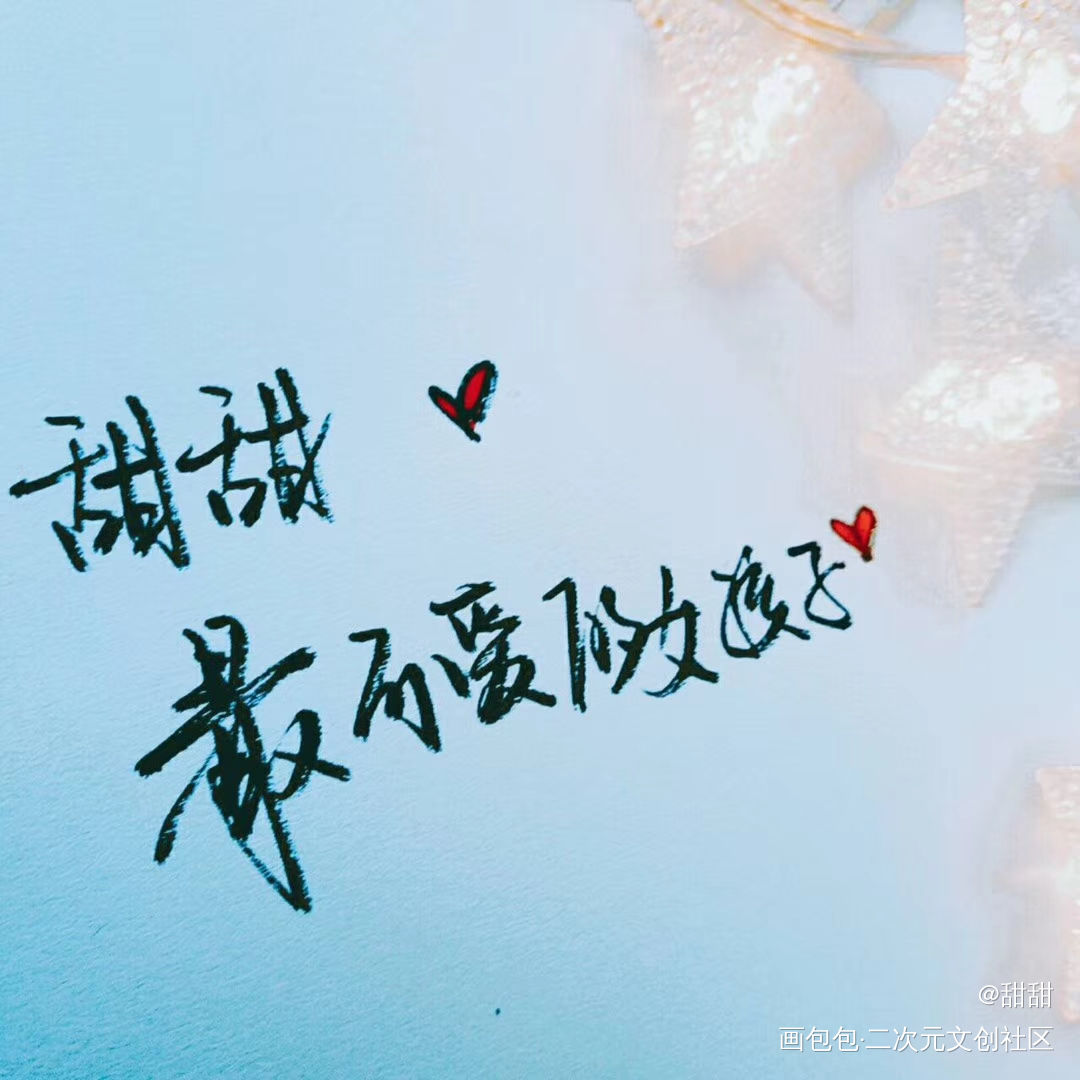 甜甜
最可爱的女孩子
@甜甜
画包包·二次元文创社区